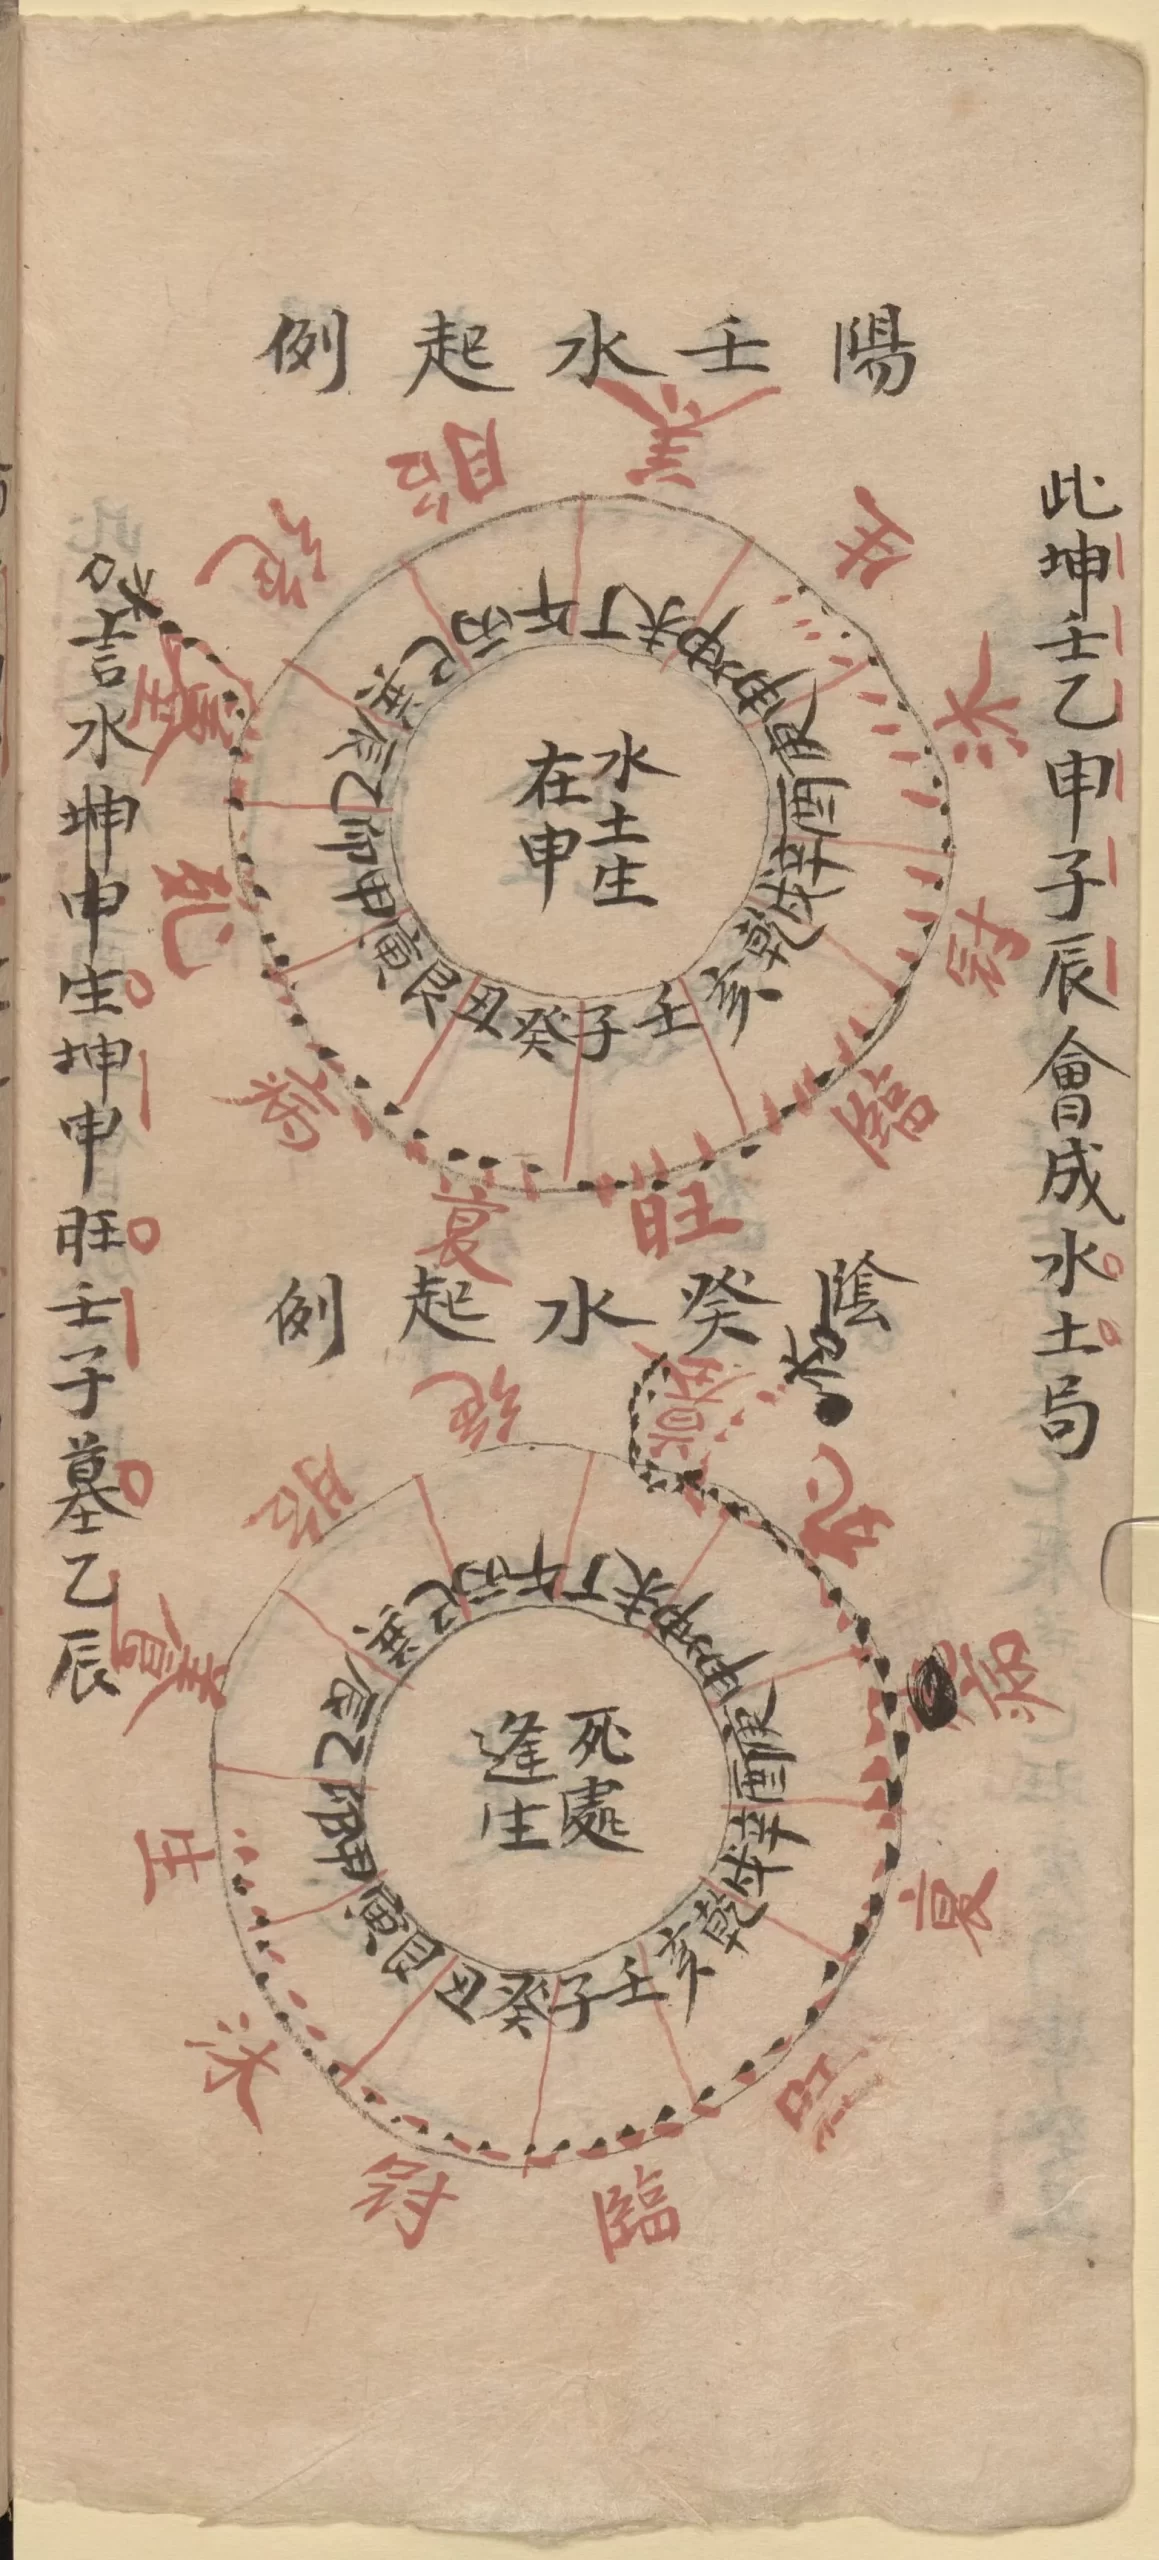 此坤壬乙申子辰會成水土局
陽壬水起例
養
生
沐
冠
臨
旺
衰
病
死
墓
絕
胎
午丁未坤申庚酉辛戌乾亥壬子癸丑艮寅甲卯乙辰巽巳丙
水土生
在申
陰癸水起例
墓
死
病
衰
旺
臨
冠
沐
生
養
胎
絕
午丁未坤申庚酉辛戌乾亥壬子癸丑艮寅甲卯乙辰巽巳丙
死處
逢生
水
言水坤申生坤申旺壬子墓乙辰